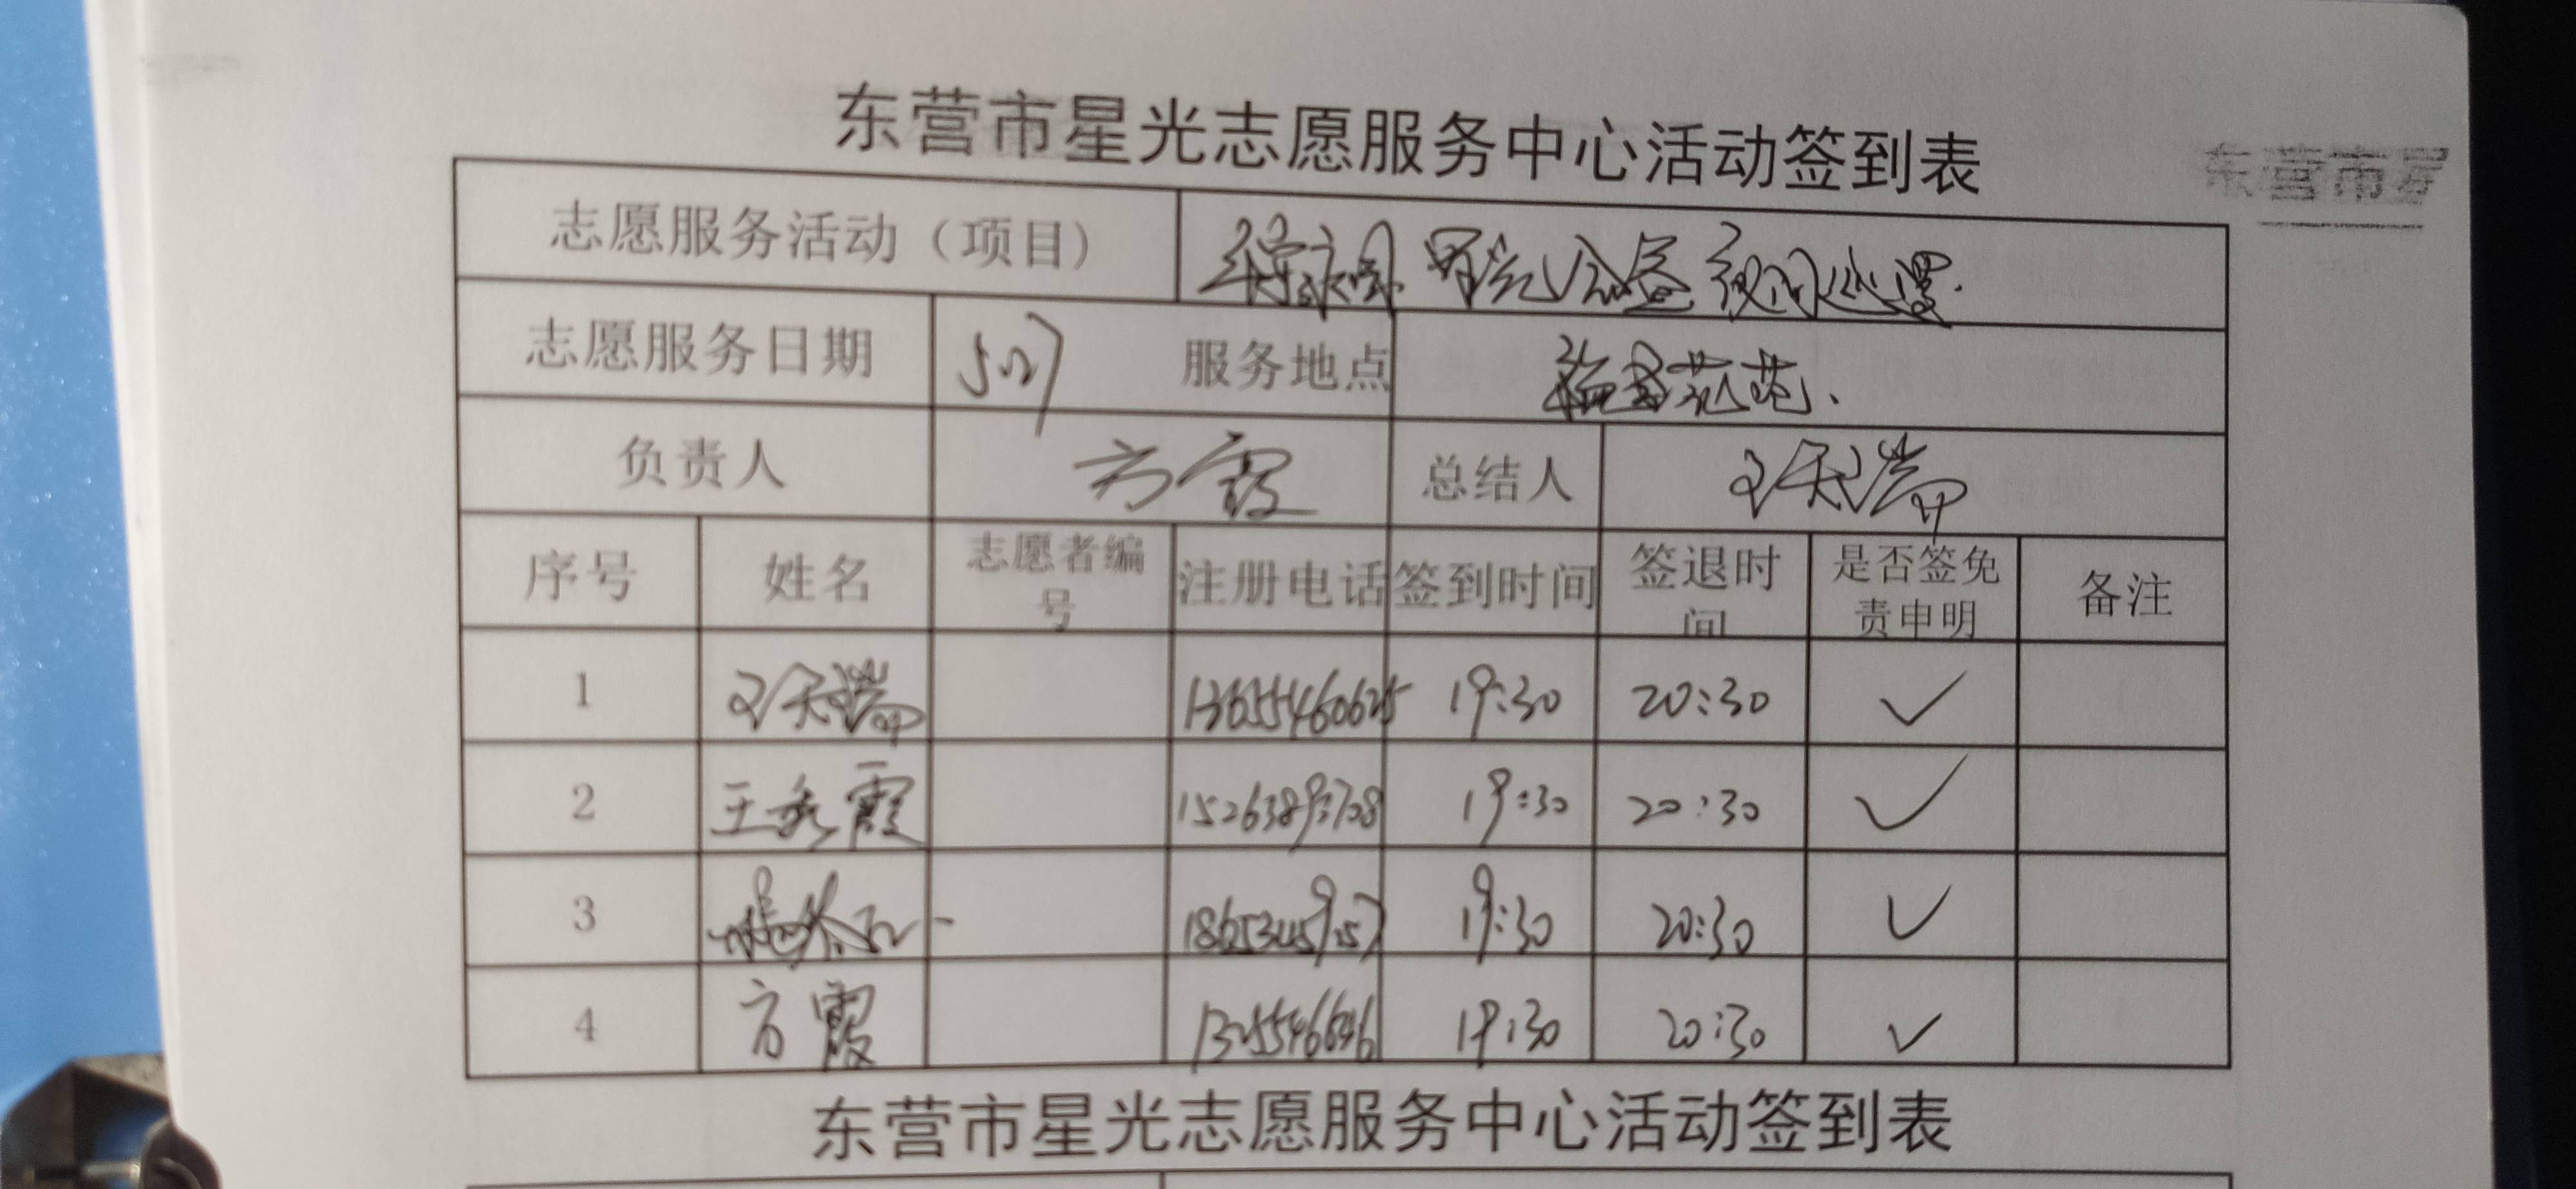 东营市星光志愿服务中心活动签到表
东营市星
志愿服务活动（项目）
志愿服务日期 5.27 服务地点
负责人 方霞 总结人 王天瑞
序号 姓名 志愿者编号 注册电话 签到时间 签退时间 是否签免责申明 备注
1 王天瑞 13655460625 19:30 20:30 ✓
2 王秀霞 19:30 20:30 ✓
3 19:30 20:30 ✓
4 方霞 19:30 20:30 ✓
东营市星光志愿服务中心活动签到表